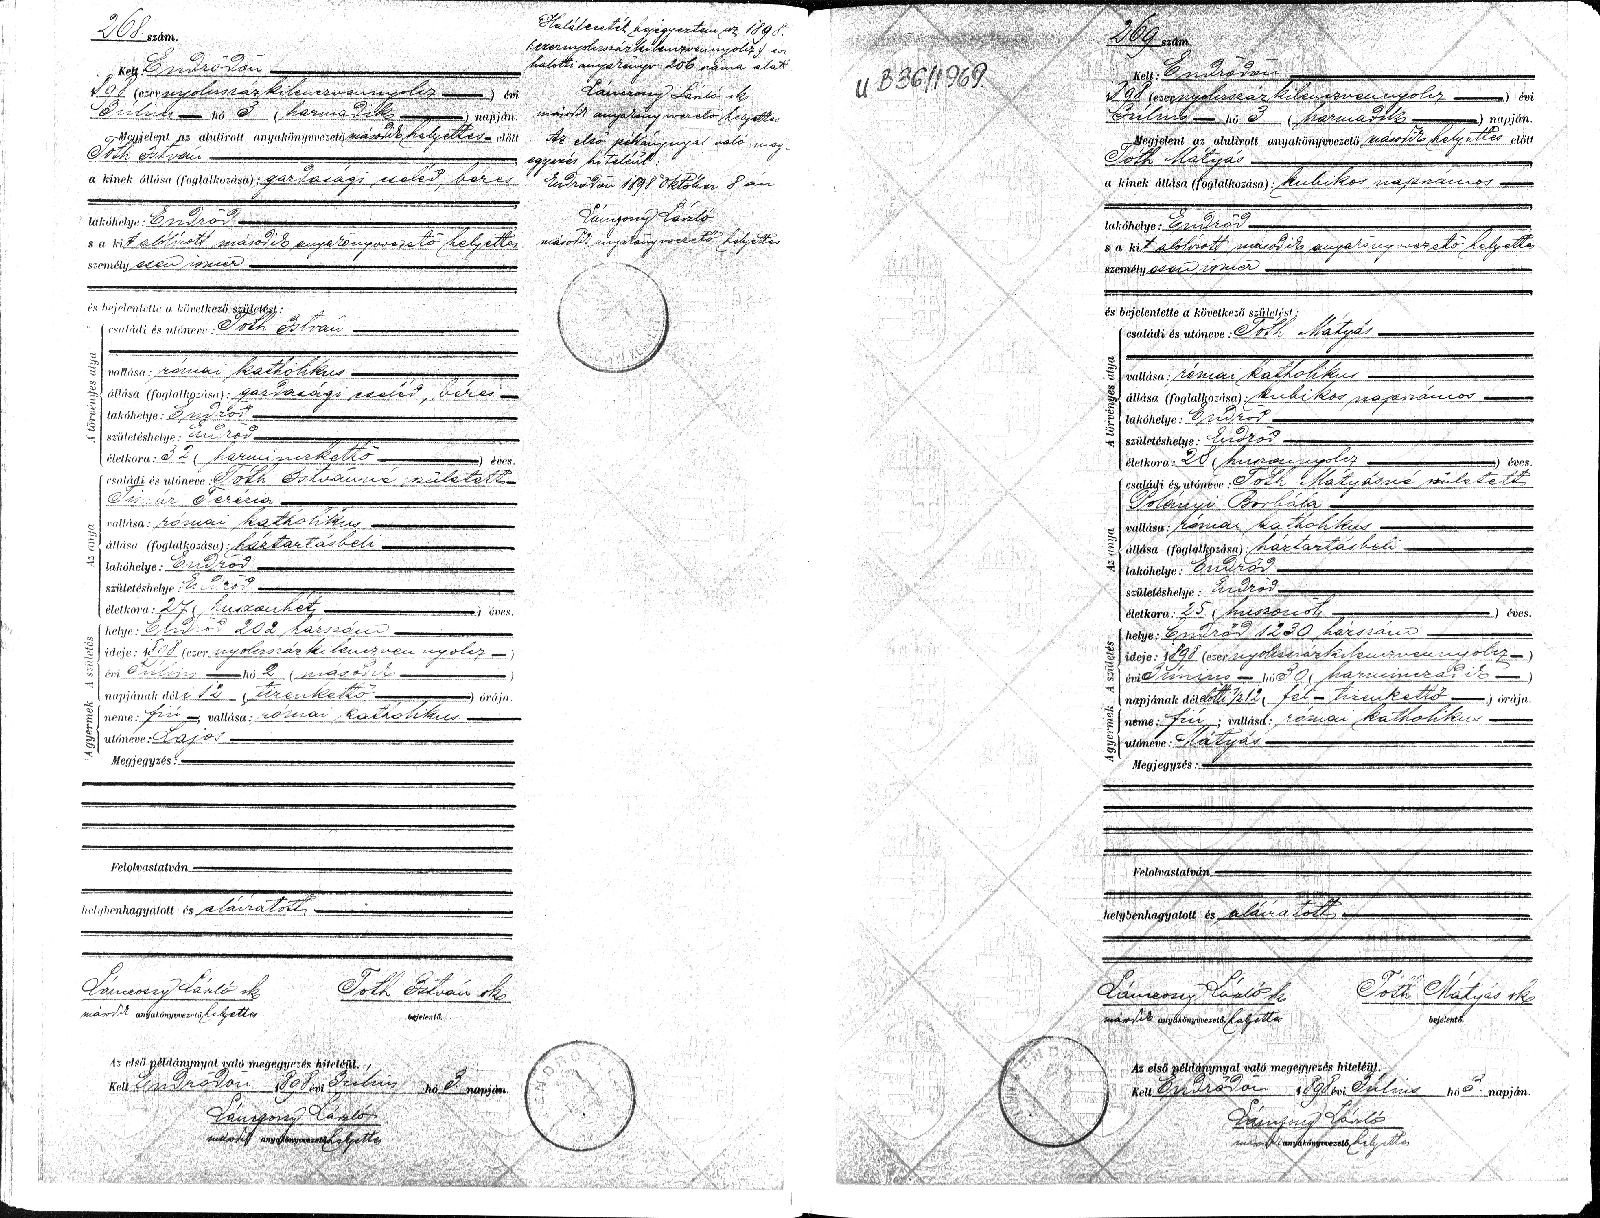 268 szám.
Kelt Endrődön
898 (ezer nyolcszázkilenczvennyolcz) évi
Július hó 3 (harmadik) napján.
Megjelent az alulirott anyakönyvezető második helyettes előtt
Tóth István
a kinek állása (foglalkozása): gazdasági cseléd, béres
lakóhelye: Endrőd
s a kit alólirott második anyakönyvvezető helyettes
személyesen ismer
és bejelentette a következő születést:
A törvényes atya
családi és utóneve: Tóth István
vallása: római katholikus
állása (foglalkozása): gazdasági cseléd, béres
lakóhelye: Endrőd
születéshelye: Endrőd
életkora: 32 (harminczkettő) éves.
Az anya
családi és utóneve: Tóth Istvánné született
Timár Terézia
vallása: római katholikus
állása (foglalkozása): háztartásbeli
lakóhelye: Endrőd
születéshelye: Endrőd
életkora: 27 (huszonhét) éves.
A születés
helye: Endrőd 202 házszám
ideje: 1898 (ezer nyolcszázkilenczvennyolcz)
évi Július hó 2 (második)
napjának déli 12 (tizenkettő) órája.
A gyermek
neme: fiú; vallása: római katholikus
utóneve: Lajos
Megjegyzés:
Felolvastatván
helybenhagyatott és aláiratott
Lánczony László sk
második anyakönyvezető helyettes
Tóth István sk
bejelentő.
Az első példánynyal való megegyezés hiteléül.
Kelt Endrődön 1898 évi Július hó 3. napján.
Lánczony László
második anyakönyvezető helyettes
Halálesetét bejegyeztem az 1898.
(ezernyolcszázkilenczvennyolcz) évi
halotti anyakönyv 206 száma alatt
Lánczony László sk
második anyakönyvvezető helyettes
Az első példánynyal való meg-
egyezés hiteléül:
Endrődön 1898 Október 8 án
Lánczony László
második anyakönyvvezető helyettes
U B 36/1969.
269 szám.
Kelt: Endrődön
898 (ezer nyolcszázkilenczvennyolcz) évi
Július hó 3 (harmadik) napján.
Megjelent az alulirott anyakönyvezető második helyettes előtt
Tóth Mátyás
a kinek állása (foglalkozása): kubikos napszámos
lakóhelye: Endrőd
s a kit alólirott második anyakönyvvezető helyettes
személyesen ismer
és bejelentette a következő születést:
A törvényes atya
családi és utóneve: Tóth Mátyás
vallása: római katholikus
állása (foglalkozása): kubikos napszámos
lakóhelye: Endrőd
születéshelye: Endrőd
életkora: 28 (huszonnyolcz) éves.
Az anya
családi és utóneve: Tóth Mátyásné született
Polányi Borbála
vallása: római katholikus
állása (foglalkozása): háztartásbeli
lakóhelye: Endrőd
születéshelye: Endrőd
életkora: 25 (huszonöt) éves.
A születés
helye: Endrőd 1230 házszám
ideje: 1898 (ezer nyolcszázkilenczvennyolcz)
évi Június hó 30 (harminczadik)
napjának délelőtti ½12 (fél-tizenkettő) órája.
A gyermek
neme: fiú; vallása: római katholikus
utóneve: Mátyás
Megjegyzés:
Felolvastatván
helybenhagyatott és aláiratott
Lánczony László sk
második anyakönyvezető helyettes
Tóth Mátyás sk
bejelentő.
Az első példánynyal való megegyezés hiteléül.
Kelt Endrődön 1898 évi Július hó 3. napján.
Lánczony László
második anyakönyvezető helyettes